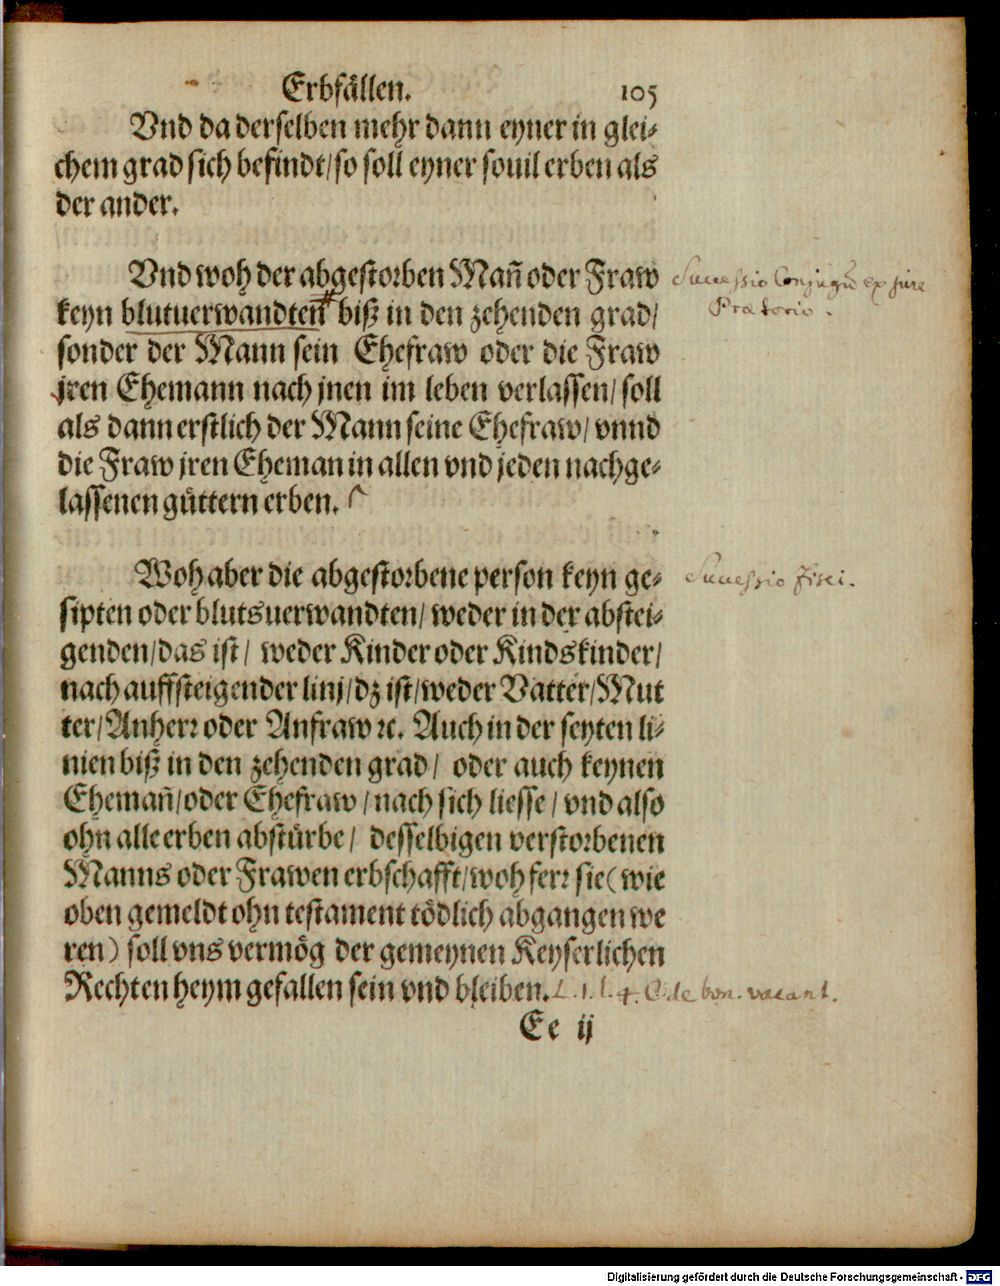 Erbfällen. 105
Vnd da derselben mehr dann eyner in glei-
chem grad sich befindt/ so soll eyner souil erben als
der ander.
Vnd woh der abgestorben Mañ oder Fraw
keyn blutuerwandten biß in den zehenden grad/
sonder der Mann sein Ehefraw oder die Fraw
jren Ehemann nach jnen im leben verlassen/ soll
als dann erstlich der Mann seine Ehefraw/ vnnd
die Fraw jren Eheman in allen vnd jeden nachge-
lassenen güttern erben.
Successio Conjugũ ex jure
Prætorio.
Woh aber die abgestorbene person keyn ge-
sipten oder blutsuerwandten/ weder in der abstei-
genden/ das ist/ weder Kinder oder Kindskinder/
nach auffsteigender linj/ dz ist/ weder Vatter/ Mut
ter/ Anherr oder Anfraw ꝛc. Auch in der seyten li-
nien biß in den zehenden grad/ oder auch keynen
Ehemañ/ oder Ehefraw/ nach sich liesse/ vnd also
ohn alle erben abstürbe/ desselbigen verstorbenen
Manns oder Frawen erbschafft/ woh ferr sie (wie
oben gemeldt ohn testament tödlich abgangen we
ren) soll vns vermög der gemeynen Keyserlichen
Rechten heym gefallen sein vnd bleiben. L. 1. l. 4. C. de bon. vacant.
Successio Fisci.
Ee ij
Digitalisierung gefördert durch die Deutsche Forschungsgemeinschaft - DFG